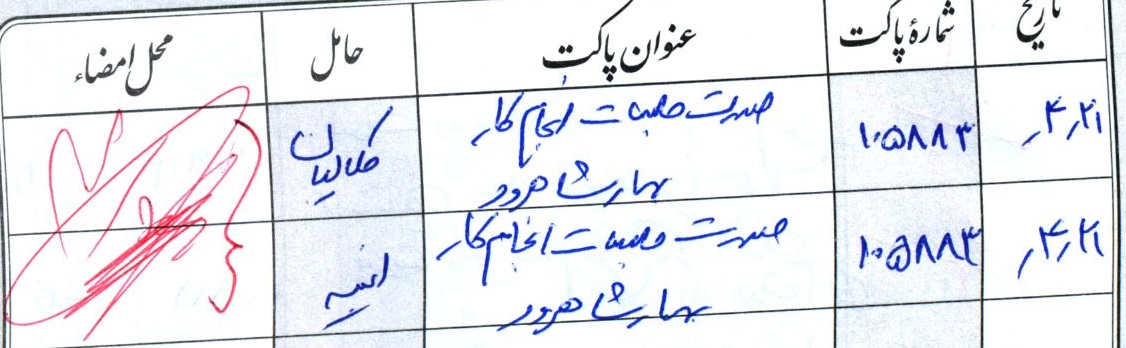 تاریخ شمارهٔ پاکت عنوان پاکت حامل محل امضاء
۴٫۲۱ ۱۰۵۸۸۳ صورت جلسات انجام کار
بهارشاهرود
۴٫۲۱ ۱۰۵۸۸۳ صورت جلسات انجام کار
بهارشاهرود